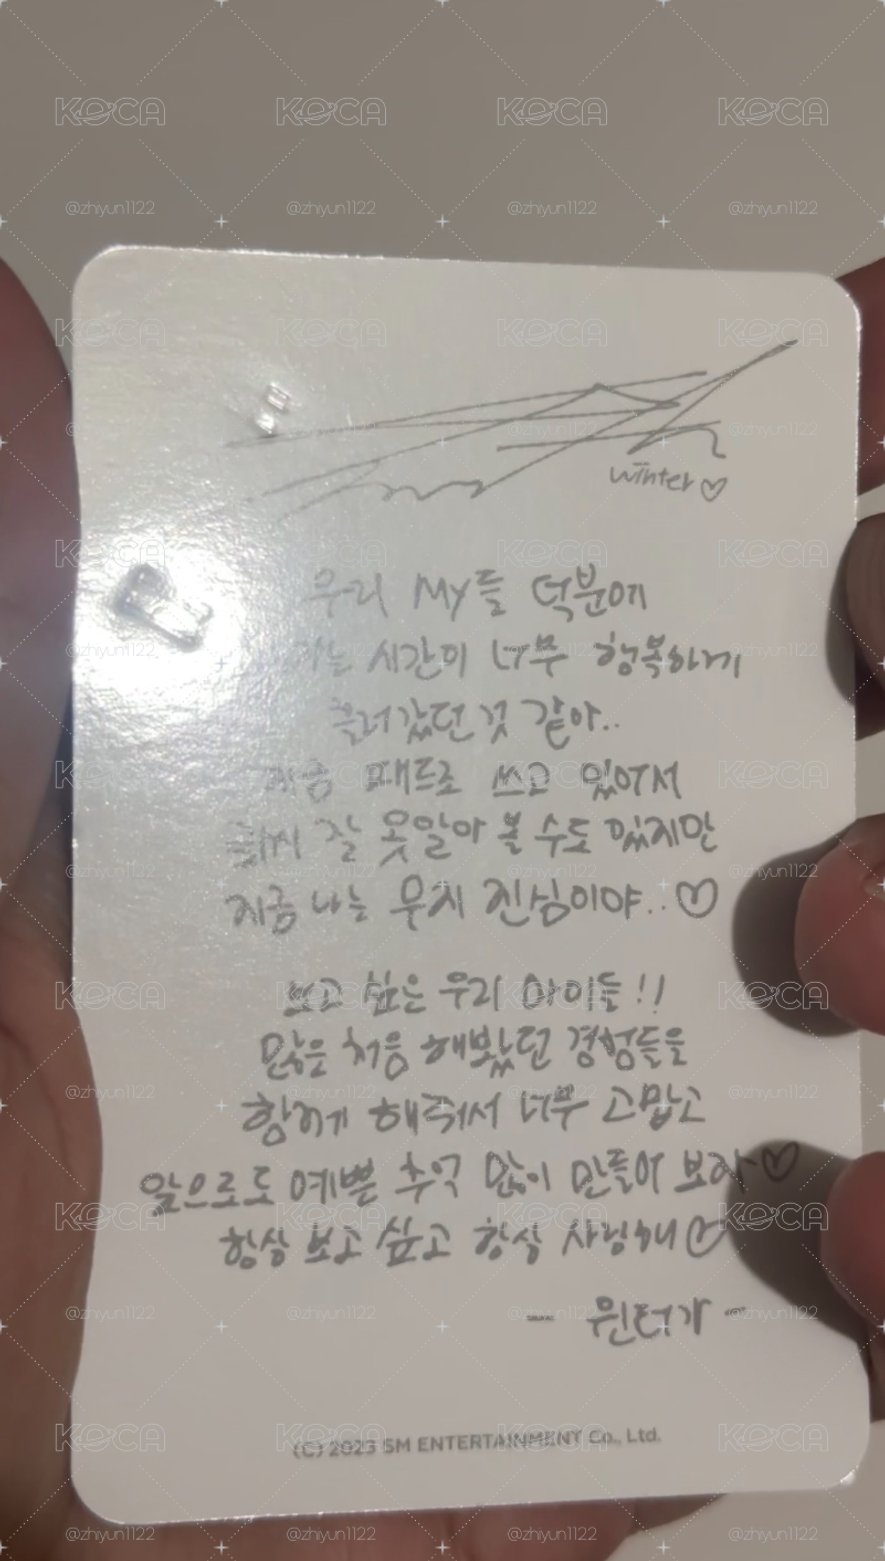 KOCA
@zhyun1122
winter♡
우리 My들 덕분에
시간이 너무 행복하게
흘러갔던것 같아..
지금 패드로 쓰고 있어서
글씨 잘 못알아 볼 수도 있지만
지금 나는 무지 진심이야..♡
보고 싶은 우리 마이들!!
많은 처음 해봤던 경험들을
함께 해줘서 너무 고맙고
앞으로도 예쁜 추억 많이 만들어 보자♡
항상 보고 싶고 항상 사랑해♡
- 윈터가 -
(C) 2023 SM ENTERTAINMENT Co., Ltd.